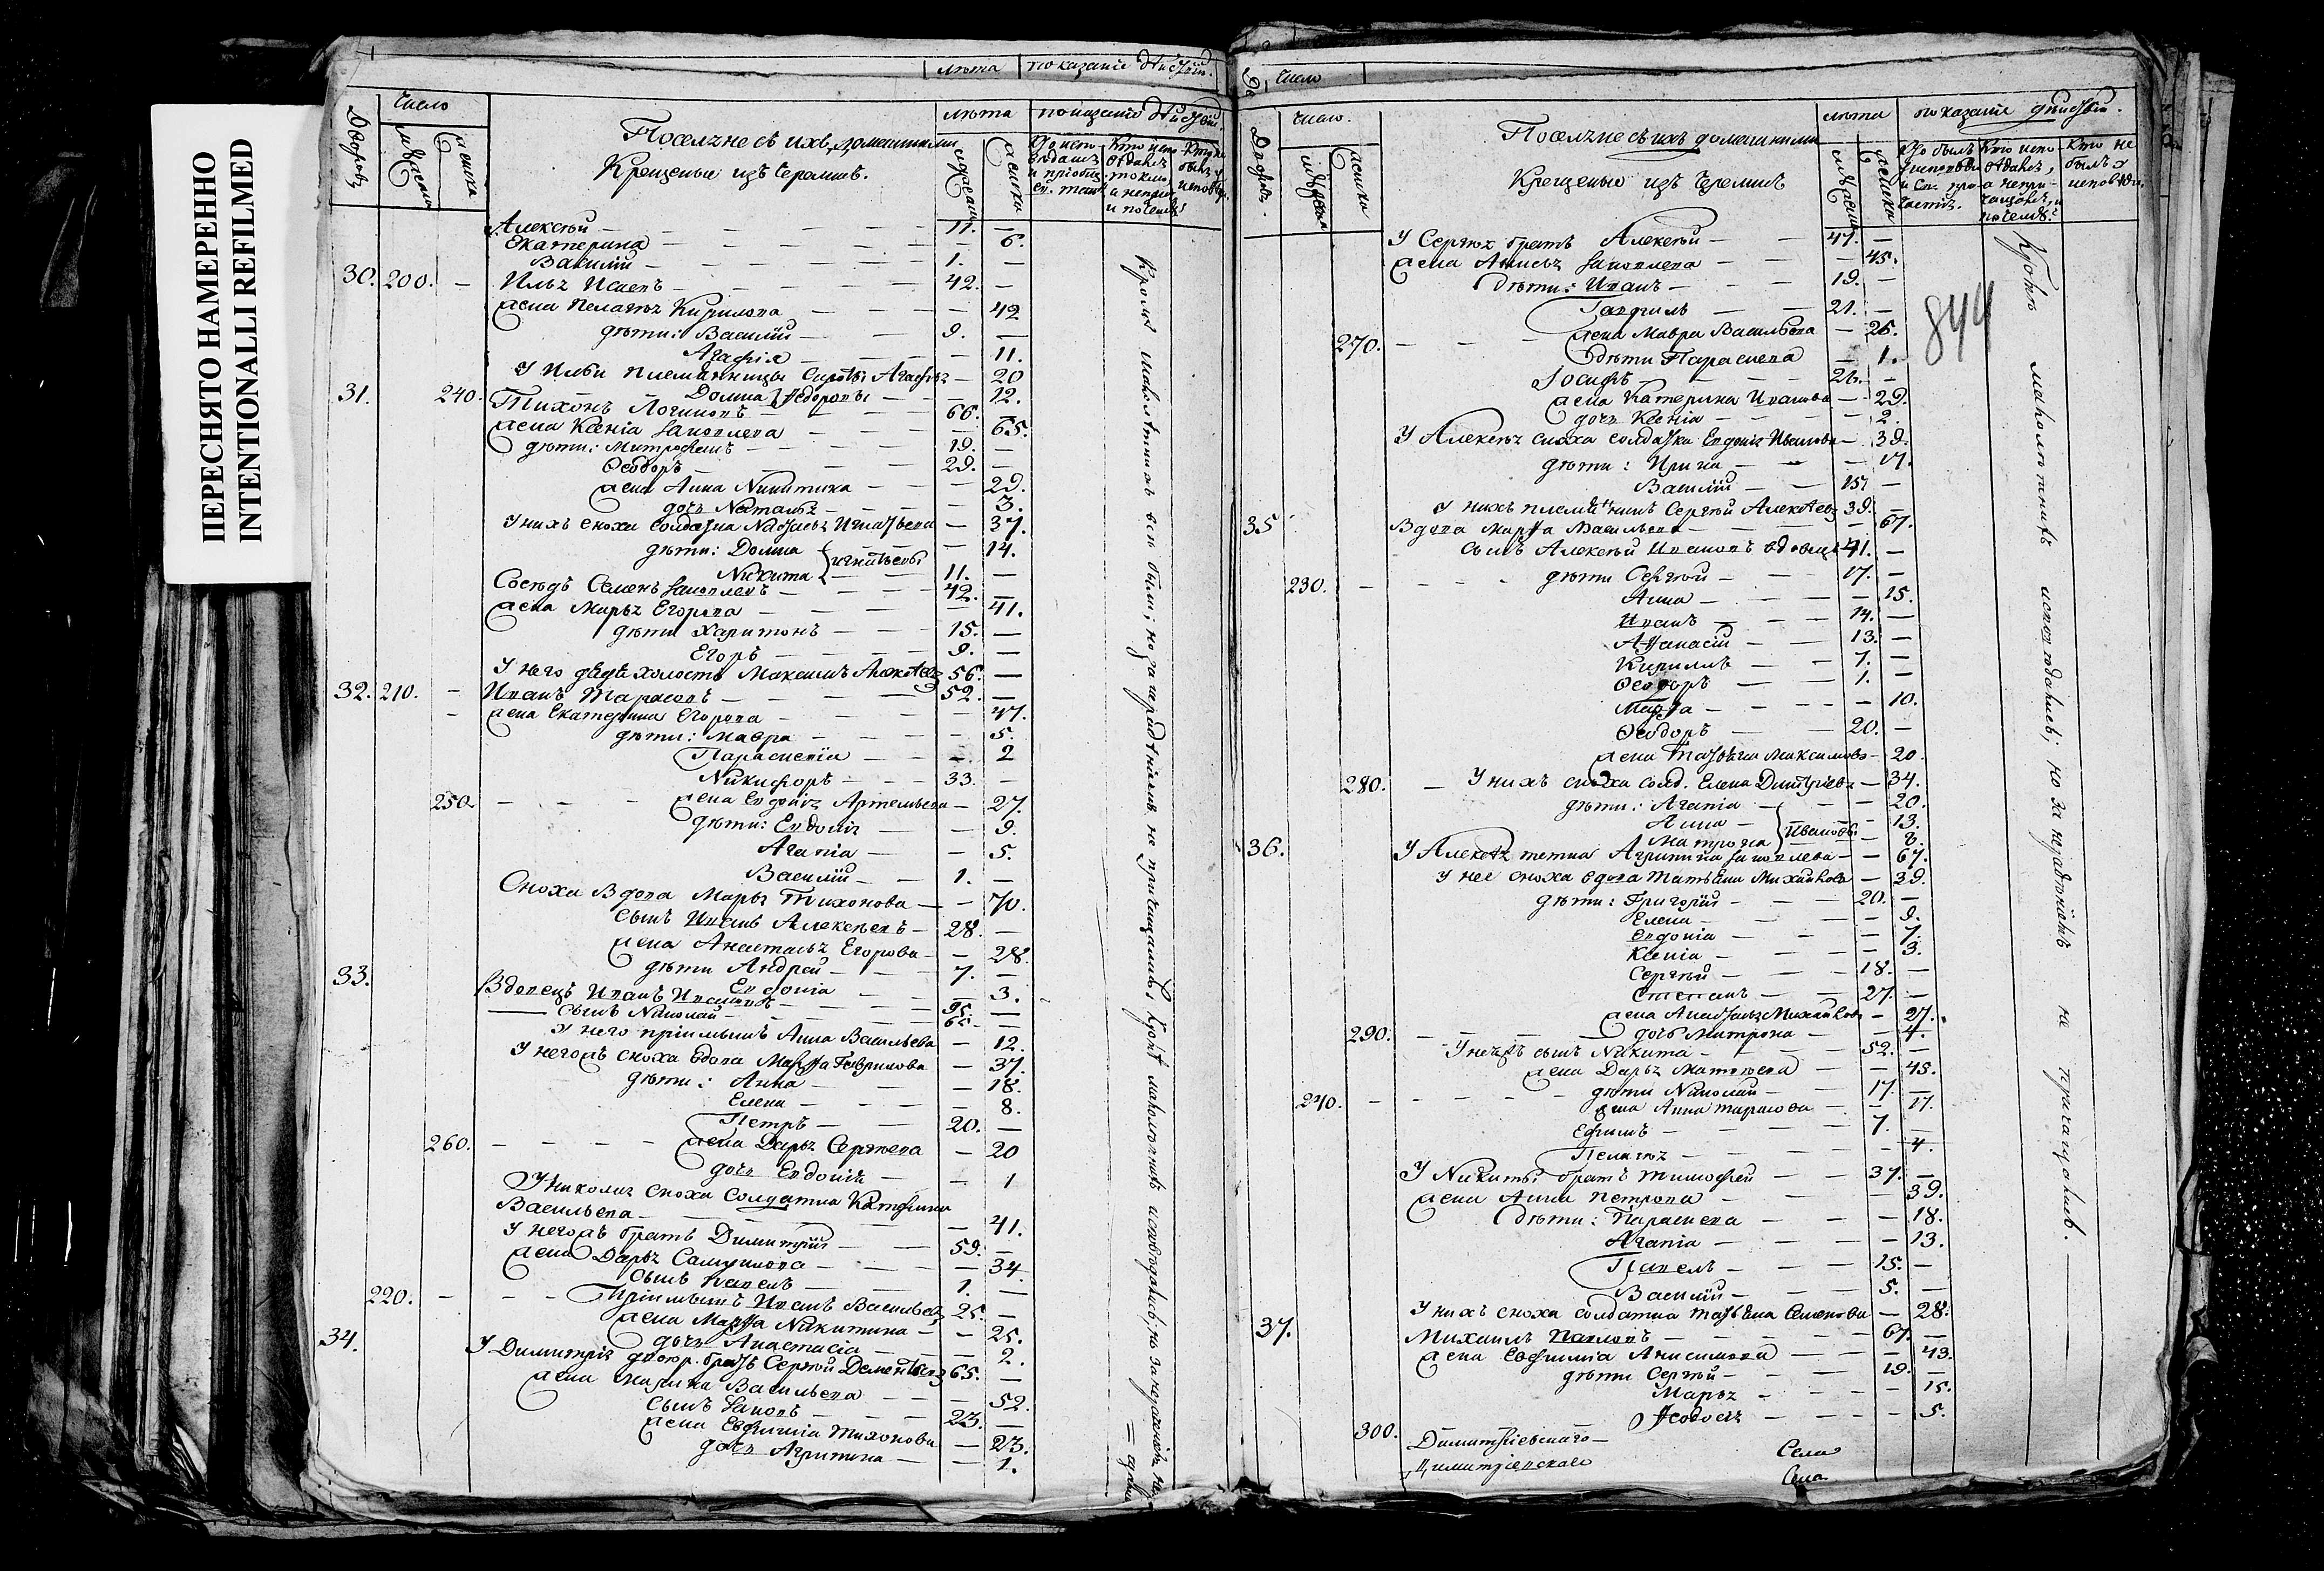 ПЕРЕСНЯТО НАМЕРЕННО
INTENTIONALLI REFILMED
лѣта показаніе дѣйств.
Дворовъ Число мужеска женска
Поселяне съ ихъ домашними
Крещеные изъ черемисъ.
лѣта мужеска женска
показаніе дѣйств.
Алексѣй — 11. —
Екатерина — — 6.
Василій — 1. —
30. 200. — Илья Исаевъ — 42. —
жена Пелагея Кирилова — — 42
дѣти: Василій — 9. —
Агафія — — 11.
У Ильи племянницы сироты Агафья — 20
Домна Ѳедоровы — 12.
31. 240. Тихонъ Логиновъ — 66. —
жена Ксенія Яковлева — — 65.
дѣти: Митрофанъ — 19. —
Ѳеодоръ — 29. —
жена Анна Никитина — — 29.
дочь Наталья — — 3.
У нихъ сноха солдатка Наталья Игнатьева — 37.
дѣти: Домна — 14.
Никита Игнатьевы 11. —
Сосѣдъ Семенъ Яковлевъ — 42. —
жена Марья Егорова — — 41.
дѣти Харитонъ — 15. —
Егоръ — 9. —
У него дядя холостъ Максимъ Алексѣевъ 56. —
32. 210. — Иванъ Тарасовъ — 52. —
жена Екатерина Егорова — — 47.
дѣти: Мавра — — 5.
Параскевія — — 2
Никифоръ — 33. —
250. — жена Евдокія Артемьева — 27.
дѣти: Евдокія — — 9.
Агапія — — 5.
Василій — 1. —
Сноха вдова Марья Тихонова — — 70.
сынъ Иванъ Алексѣевъ — 28. —
жена Анастасья Егорова — — 28.
дѣти Андрей — 7. —
Евдокія — — 3.
33. Вдовецъ Иванъ Ивановъ — 95. —
сынъ Николай — 65. —
У него пріемышъ Анна Васильева — 12.
У негожъ сноха вдова Марѳа Гаврилова — 37.
дѣти: Анна — — 18.
Елена — — 8.
Петръ — 20. —
260. — жена Дарья Сергѣева — 20
дочь Евдокія — — 1
У Николая сноха солдатка Катерина
Васильева — — 41.
У негожъ братъ Димитрій — 59. —
жена Дарья Самуилова — — 34
сынъ Павелъ — 1. —
220. — Пріемышъ Иванъ Васильевъ 25. —
жена Марѳа Никитина — — 25.
дочь Анастасія — — 2.
34. У Димитрія двоюр. братъ Сергѣй Дементьевъ 65. —
жена Марина Васильева — — 52.
сынъ Яковъ — 23. —
жена Евфимія Тихонова — 23.
дочь Агрипина — — 1.
Кромѣ малолѣтнихъ
Число
Дворовъ. Число. мужеска женска
Поселяне съ ихъ домашними
Крещеные изъ черемисъ
лѣта мужеска женска
показаніе дѣйств.
Кто былъ у исповѣди и Св. причастія.
Кто исповѣдался, а не причащался, и почему?
Кто не былъ у исповѣди.
У Сергѣя братъ Алексѣй — 47. —
жена Анисья Яковлева — — 45.
дѣти: Иванъ — 19. —
Гавріилъ — 21. —
270. — жена Мавра Васильева — 26.
дѣти Параскева — 1.
Іосифъ — 26. —
жена Катерина Иванова — 29.
дочь Ксенія — — 2.
У Алексѣя сноха солдатка Евдокія Иванова — 39.
дѣти: Ирина — — 17.
Василій — 15 —
У нихъ племянникъ Сергѣй Алексѣевъ 39. —
35 Вдова Марѳа Васильева — — 67.
сынъ Алексѣй Ивановъ вдовецъ 41. —
230. — дѣти Сергѣй — 17. —
Анна — — 15.
Иванъ — 14. —
Аѳанасій — 13. —
Кириллъ — 7. —
Ѳеодоръ — 1. —
Марѳа — — 10.
Ѳеодоръ — 20. —
жена Татьяна Максимова — 20.
280. — У нихъ сноха солд. Елена Димитріева — 34.
дѣти: Агапія — — 20.
Анна — — 13.
Матрона Ивановы — 8.
36. У Алексѣя тетка Агрипина Яковлева — — 67.
У нее сноха вдова Татьяна Михайлова — 39.
дѣти: Григорій — 20. —
Елена — — 9.
Евдокія — — 7.
Ксенія — — 3.
Сергѣй — 18. —
Степанъ — 27. —
жена Анастасья Михайлова — 27.
290. — дочь Матрона — — 4.
У неежъ сынъ Никита — 52. —
жена Дарья Матвѣева — — 45.
240. — дѣти Николай — 17. —
жена Анна Тарасова — — 17.
Ефимъ — 7. —
Пелагея — — 4.
У Никиты братъ Тимофей — 37. —
жена Анна Петрова — — 39.
дѣти: Параскева — — 18.
Агапія — — 13.
Павелъ — 15. —
Василій — 5. —
У нихъ сноха солдатка Татьяна Семенова — 28.
37. Михаилъ Павловъ — 67. —
жена Евфимія Анисимова — — 43.
дѣти Сергѣй — 19. —
Марья — — 15.
300. Ѳеодосья — — 5.
Димитріевскаго — Села
Димитріевскаго Села
844
Кромѣ малолѣтнихъ исповѣдались; но за нерадѣніемъ не причащались.